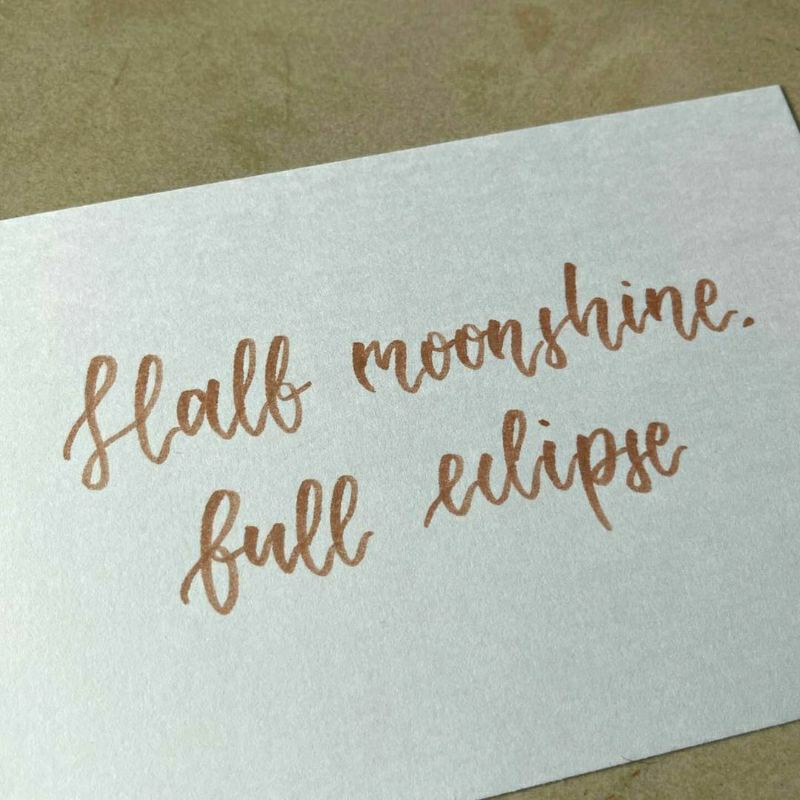 Half moonshine.
full eclipse